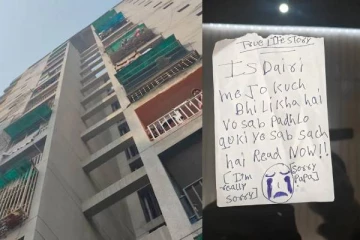 True life story
Is Dairi
me Jo kuch
bhi likha hai
vo sab Padhlo
quki ye sab sach
hai Read NOW!!
[I'm really sorry]
[Sorry Papa]